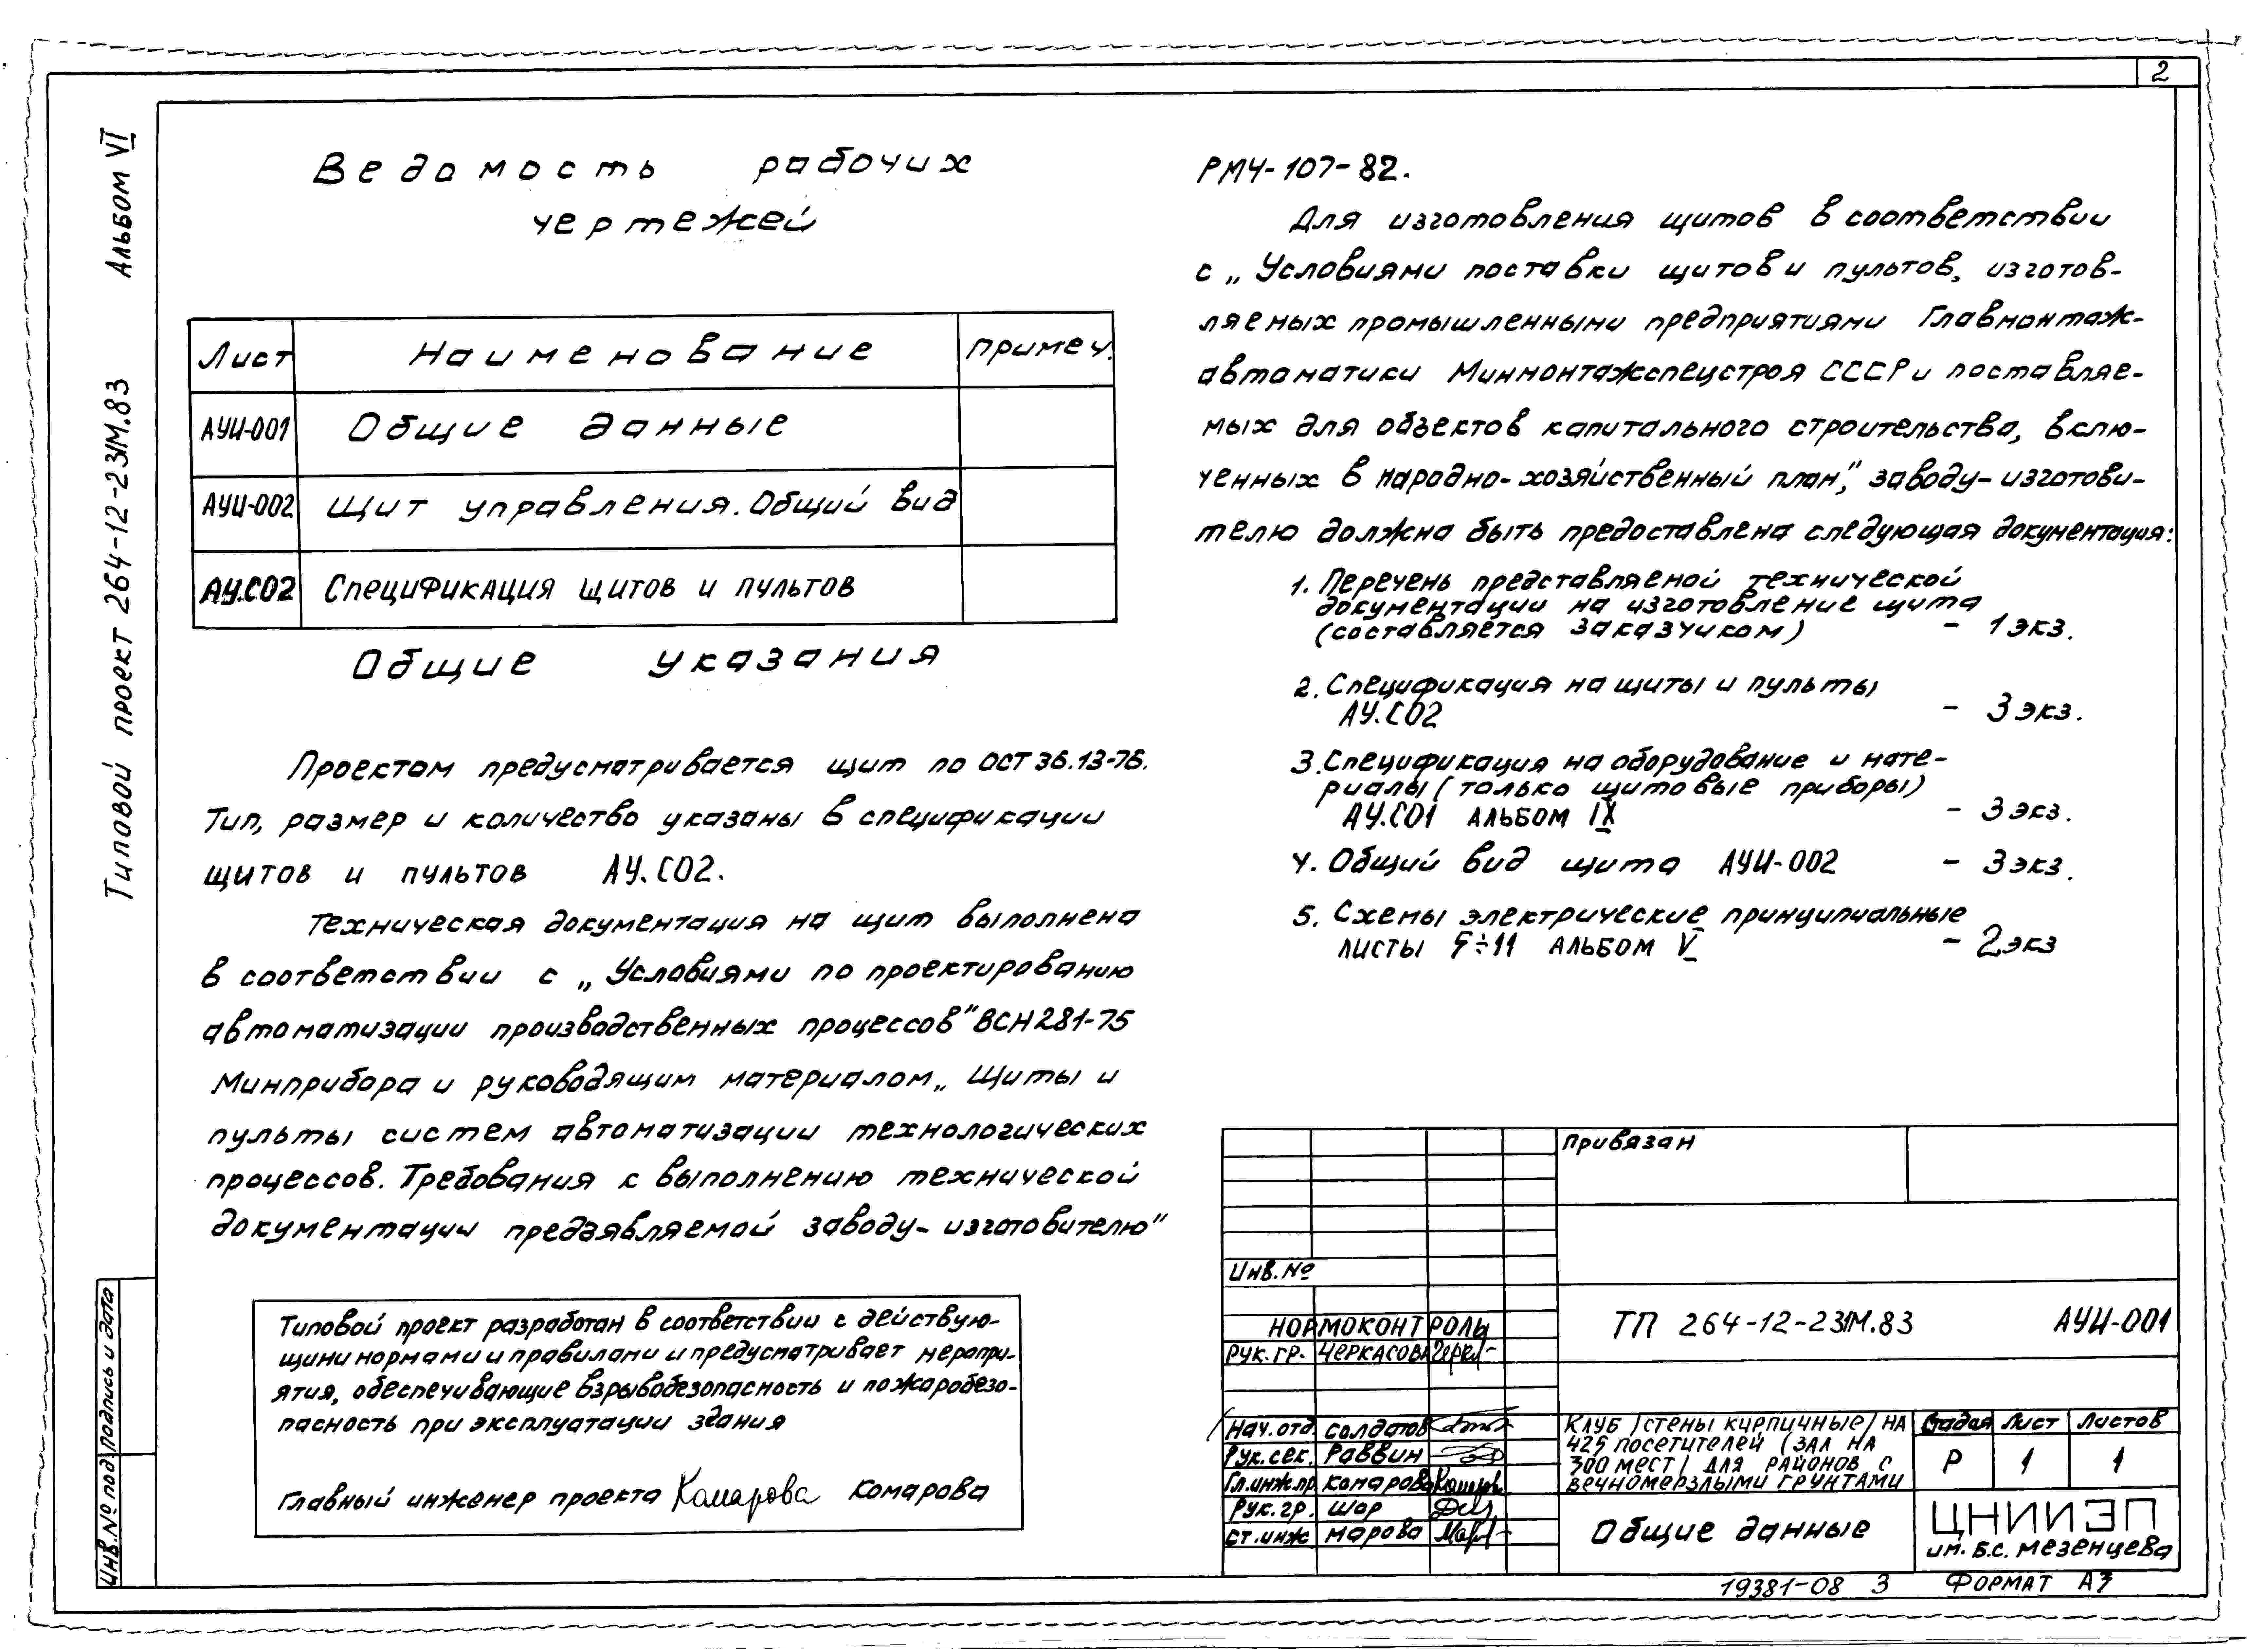 2
Альбом VI
Типовой проект 264-12-231М.83
Ведомость рабочих
чертежей
Лист Наименование Примеч.
АУИ-001 Общие данные
АУИ-002 Щит управления. Общий вид
АУ.СО2 Спецификация щитов и пультов
Общие указания
Проектом предусматривается щит по ОСТ 36.13-76.
Тип, размер и количество указаны в спецификации
щитов и пультов АУ.СО2.
Техническая документация на щит выполнена
в соответствии с „Условиями по проектированию
автоматизации производственных процессов" ВСН 281-75
Минприбора и руководящим материалом „Щиты и
пульты систем автоматизации технологических
процессов. Требования к выполнению технической
документации предъявляемой заводу-изготовителю"
Типовой проект разработан в соответствии с действую-
щими нормами и правилами и предусматривает меропри-
ятия, обеспечивающие взрывобезопасность и пожаробезо-
пасность при эксплуатации здания
Главный инженер проекта Комарова Комарова
РМ4-107-82.
Для изготовления щитов в соответствии
с „Условиями поставки щитов и пультов, изготов-
ляемых промышленными предприятиями Главмонтаж-
автоматики Минмонтажспецстроя СССР и поставляе-
мых для объектов капитального строительства, вклю-
ченных в народно-хозяйственный план", заводу-изготови-
телю должна быть предоставлена следующая документация:
1. Перечень представляемой технической
документации на изготовление щита
(составляется заказчиком) - 1 экз.
2. Спецификация на щиты и пульты
АУ.СО2 - 3 экз.
3. Спецификация на оборудование и мате-
риалы (только щитовые приборы)
АУ.СО1 альбом IX - 3 экз.
4. Общий вид щита АУИ-002 - 3 экз.
5. Схемы электрические принципиальные
листы 5÷11 альбом V - 2 экз
Привязан
Инв. №
Нормоконтроль
Рук. гр. Черкасова
ТП 264-12-231М.83 АУИ-001
Нач. отд. Солдатов
Рук. сек. Раввин
Гл. инж. пр. Комарова
Рук. гр. Шор
Ст. инж Марова
Клуб /стены кирпичные/ на
425 посетителей (зал на
300 мест) для районов с
вечномерзлыми грунтами
Стадия Лист Листов
Р 1 1
Общие данные
ЦНИИЭП
им. Б.С. Мезенцева
19381-08 3 Формат А3
Подпись и дата
Инв. № под.